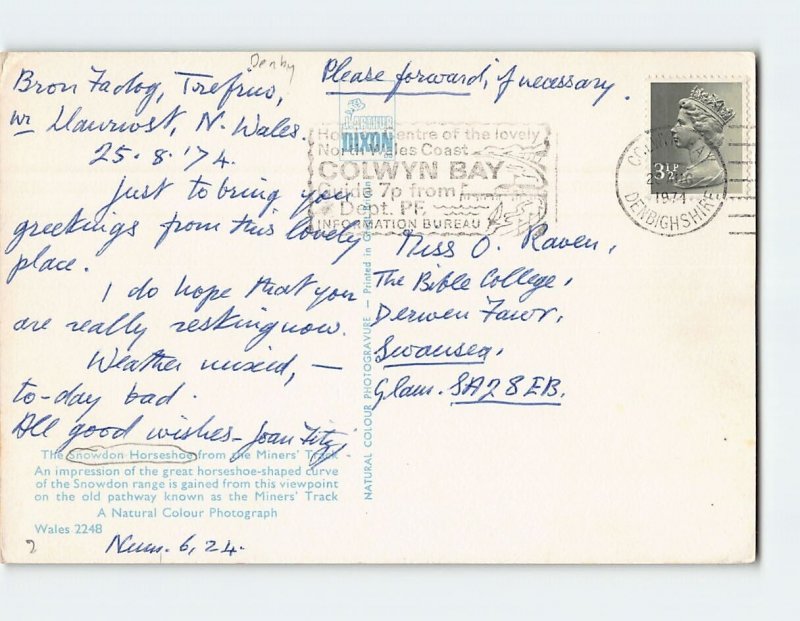 Denby
Bron Fadog, Trefriw,
nr Llanrwst, N. Wales.
25.8.'74.
Just to bring you
greetings from this lovely
place.
I do hope that you
are really resting now.
Weather mixed, —
to-day bad.
All good wishes – Joan Fitz
The Snowdon Horseshoe from the Miners' Track
An impression of the great horseshoe-shaped curve
of the Snowdon range is gained from this viewpoint
on the old pathway known as the Miners' Track
A Natural Colour Photograph
Wales 2248
2
Num. 6, 24.
NATURAL COLOUR PHOTOGRAVURE — Printed in Great Britain
Please forward, if necessary.
ARTHUR
DIXON
Centre of the lovely
North Wales Coast
COLWYN BAY
Guide 7p from
Dept. PF,
INFORMATION BUREAU
3½P
COLWYN BAY
AUG
1974
DENBIGHSHIRE
Miss O. Raven,
The Bible College,
Derwen Fawr,
Swansea,
Glam. SA2 8EB.